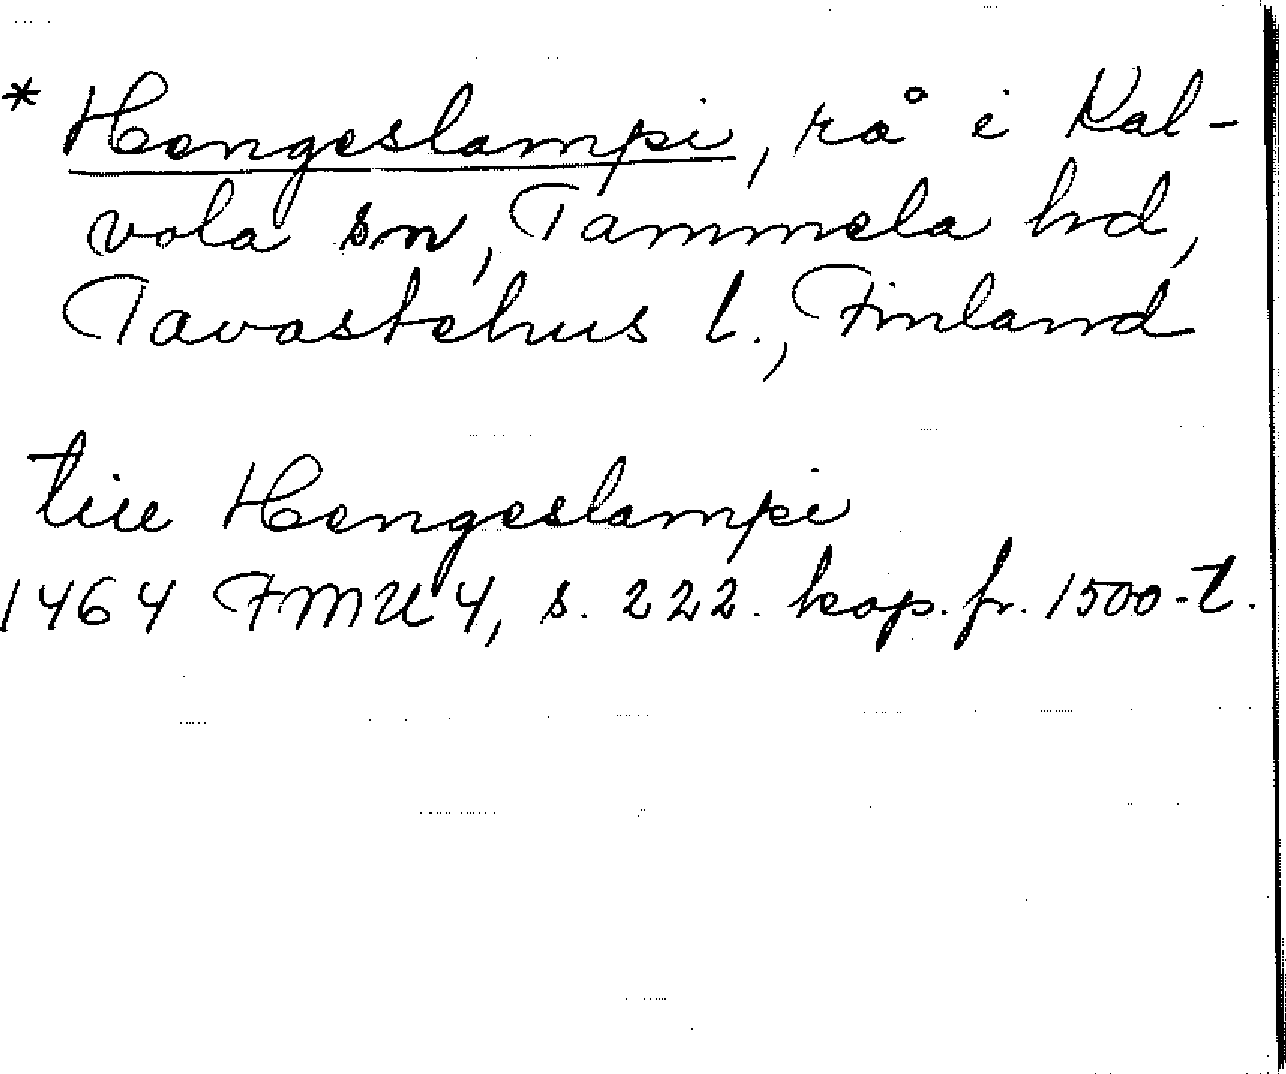 * Hengeslampi, rå i Kal-
vola sn, Tammela hd,
Tavastehus l., Finland
till Hengeslampi
1464 FMU 4, s. 222. kop. fr. 1500-t.